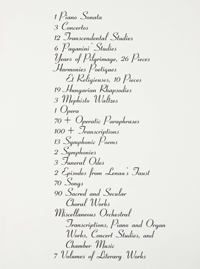 1 Piano Sonata
3 Concertos
12 Transcendental Studies
6 Paganini Studies
Years of Pilgrimage, 26 Pieces
Harmonies Poetiques
Et Religieuses, 10 Pieces
19 Hungarian Rhapsodies
3 Mephisto Waltzes
1 Opera
70 + Operatic Paraphrases
100 + Transcriptions
13 Symphonic Poems
2 Symphonies
3 Funeral Odes
2 Episodes from Lenau's Faust
70 Songs
90 Sacred and Secular
Choral Works
Miscellaneous Orchestral
Transcriptions, Piano and Organ
Works, Concert Studies, and
Chamber Music
7 Volumes of Literary Works